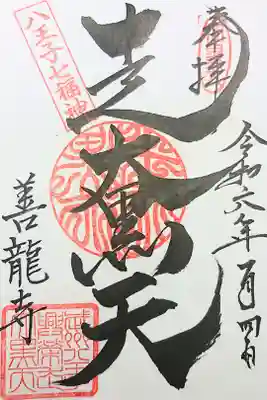 奉拝
令和六年一月四日
走大黒天
八王子七福神
善龍寺